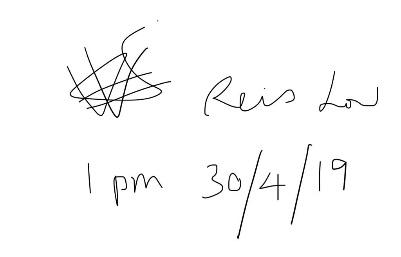 Reis Low
1 pm 30/4/19